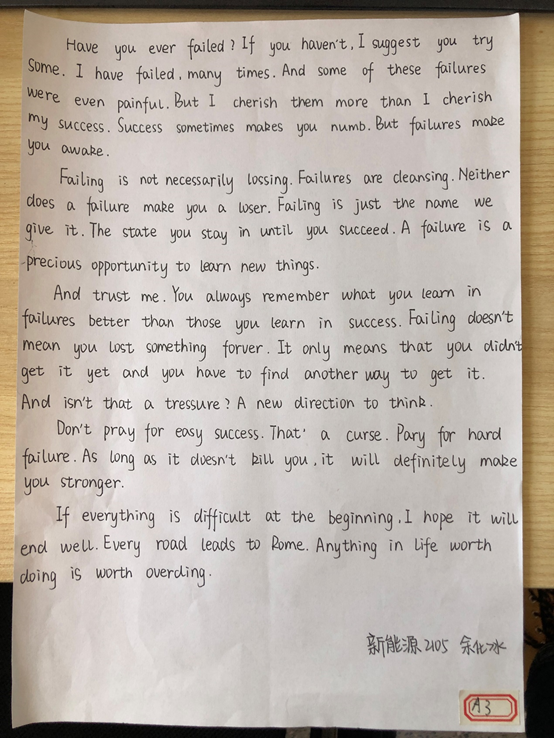 Have you ever failed? If you haven't, I suggest you try
some. I have failed, many times. And some of these failures
were even painful. But I cherish them more than I cherish
my success. Success sometimes makes you numb. But failures make
you awake.
Failing is not necessarily lossing. Failures are cleansing. Neither
does a failure make you a loser. Failing is just the name we
give it. The state you stay in until you succeed. A failure is a
precious opportunity to learn new things.
And trust me. You always remember what you learn in
failures better than those you learn in success. Failing doesn't
mean you lost something forver. It only means that you didn't
get it yet and you have to find another way to get it.
And isn't that a tressure? A new direction to think.
Don't pray for easy success. That' a curse. Pary for hard
failure. As long as it doesn't kill you, it will definitely make
you stronger.
If everything is difficult at the beginning, I hope it will
end well. Every road leads to Rome. Anything in life worth
doing is worth overding.
新能源2105 余化冰
A3